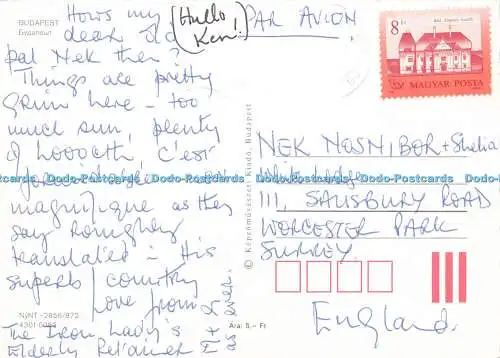 BUDAPEST
Einsachaut
Hows my
dear old
pal Nek then?
Things are pretty
grim here - too
much sun, plenty
of hooocth, c'est
magnifique as they
say. Roughly
translated - this
superb country
Love from
The Iron Lady's
Elderly Retainer
(Hullo
Ken!)
PAR AVION
8 Ft
MAGYAR POSTA
NEK NOSNIBOR + Shelia
111, SALISBURY ROAD
WORCESTER PARK
SURREY.
England.
© Képzőművészeti Kiadó, Budapest
NyNT-2856/872
Ára: 5,- Ft
Dodo-Postcards Dodo-Postcards Dodo-Postcards Dodo-Postcards Dodo-Postcards